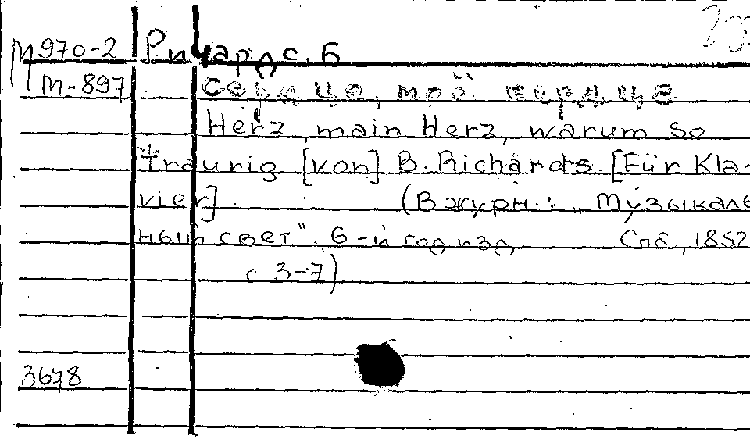 М970-2 Ричардс, Б
М-897 Сердце, моё сердце
Herz, main Herz, warum so
traurig [von] B. Richards [Für Kla-
vier] (В журн.: Музыкаль
ный свет" 6-й год изд Спб, 1852
с 3-7)
3678